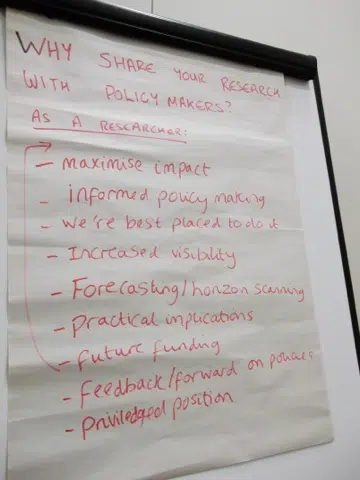 WHY SHARE YOUR RESEARCH
WITH POLICY MAKERS?
AS A RESEARCHER:
- maximise impact
- informed policy making
- we're best placed to do it
- Increased visibility
- Forecasting/horizon scanning
- Practical implications
- future funding
- feedback/forward on policies
- priviledged position